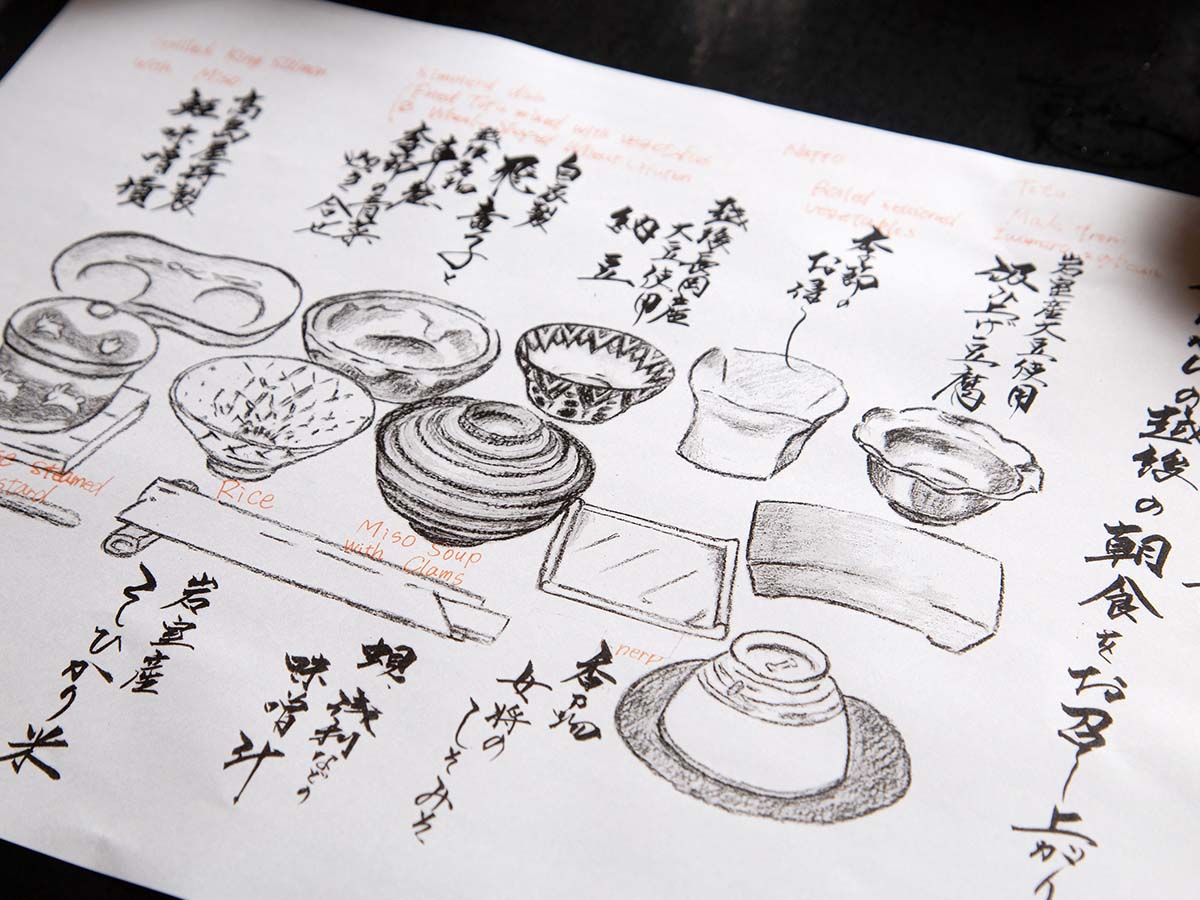 King Salmon
with Miso
Simmered dish
Fried Tofu mixed with vegetables
Natto
Boiled seasoned
vegetables
Tofu
Made from
の越後の朝食をお召し上がり
岩室産大豆使用
汲上げ豆腐
季節の
お浸し
越後長岡産
大豆使用
納豆
自家製
車麩
季節の青菜
炊き合せ
高島屋特製
鮭味噌漬
steamed
Rice
Miso Soup
with Clams
香の物
女将の
しそみそ
蜆、
浅利などの
味噌汁
岩室産
こしひかり米